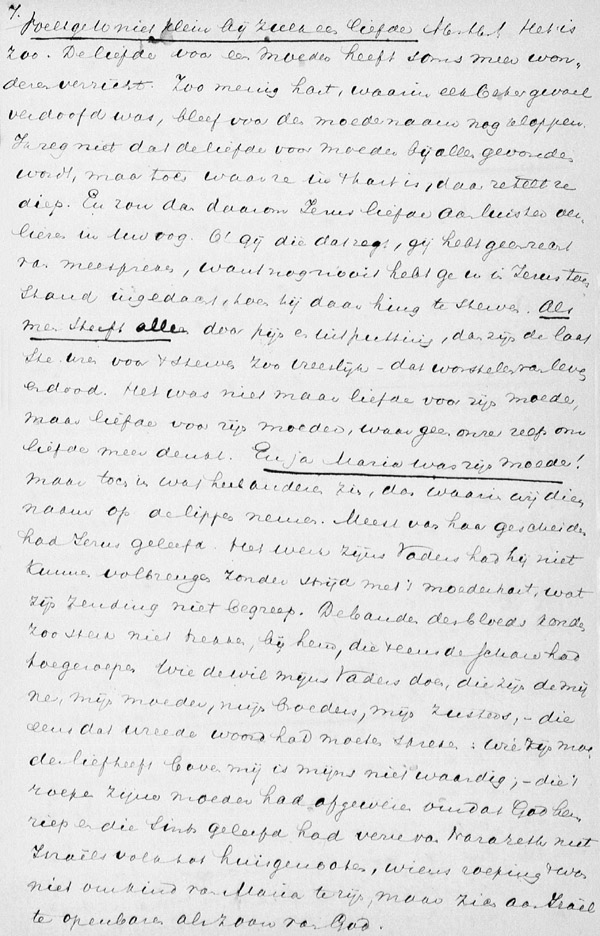 7.
Voelt ge u niet klein bij zulk een liefde M.H.! Het is
zoo. De liefde voor een moeder heeft soms meer won-
deren verricht. Zoo menig hart, waarin elk beter gevoel
verdoofd was, bleef voor den moedernaam nog kloppen.
Ik zeg niet dat de liefde voor moeder bij allen gevonden
wordt, maar toch waar ze in 't hart is, daar zetelt ze
diep. En zou dan daarom Jezus liefde aan luister ver-
liezen in uw oog. O! gij die dat zegt, gij hebt geen recht
van meespreken, want nog nooit hebt ge u in Jezus toe-
stand ingedacht, toen hij daar hing te sterven. Als
men sterft alleen door pijn en uitputting, dan zijn de laat
ste uren voor 't sterven zoo vreeslijk - dat worstelen van leven
en dood. Het was niet maar liefde voor zijn moeder,
maar liefde voor zijn moeder, waar geen onzer zelfs om
liefde meer denkt. En ja Maria was zijn moeder!
maar toch in wat heel anderen zin, dan waarin wij dien
naam op de lippen nemen. Meest van haar gescheiden
had Jezus geleefd. Het werk zijns Vaders had hij niet
kunnen volbrengen zonder strijd met 't moederhart, wat
zijn zending niet begreep. De banden des bloeds konden
zoo sterk niet trekken, bij hem, die eens de schare had
toegeroepen Wie de wil mijns Vaders doen, die zijn de mij
ne, mijn moeder, mijn broeders, mijn zusters, - die
eens dat wreede woord had moeten spreken: wie zijn moe
der liefheeft boven mij is mijns niet waardig; - die 't
roepen zijner moeder had afgewezen omdat God hem
riep en die sinds geleefd had verre van Nazareth met
Israëls volk tot huisgenooten, wiens roeping 't was
niet om kind van Maria te zijn, maar zich aan Israël
te openbaren als zoon van God.